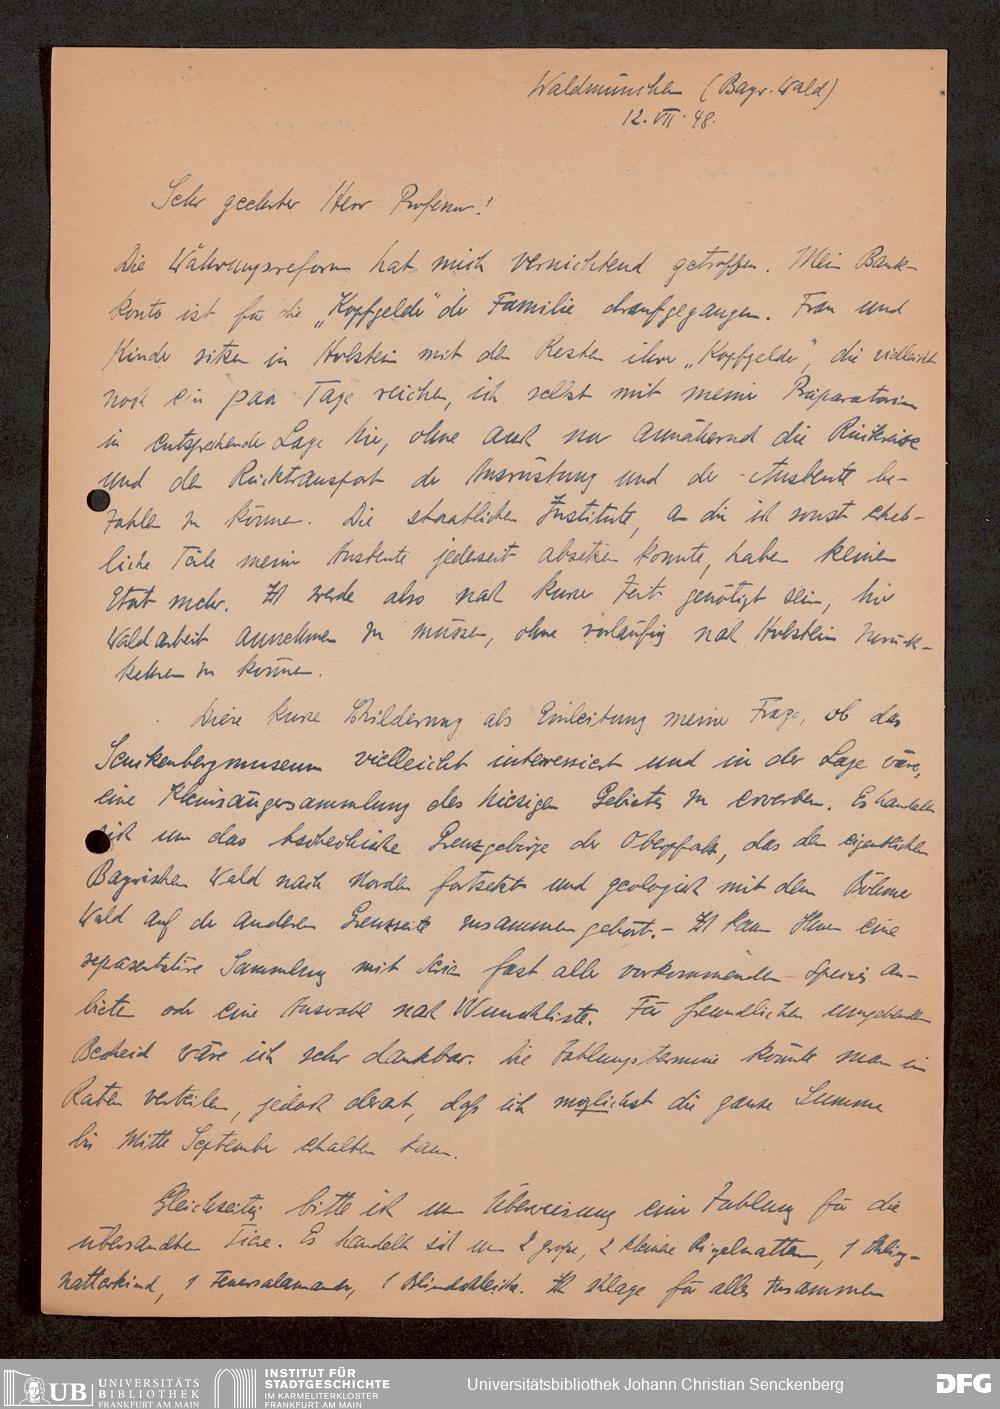 Waldmünchen (Bayr. Wald)
12. VII. 48.
Sehr geehrter Herr Professor!
Die Währungsreform hat mich vernichtend getroffen. Mein Bank-
konto ist für die „Kopfgelder" der Familie draufgegangen. Frau und
Kinder sitzen in Holstein mit den Resten ihrer „Kopfgelder", die vielleicht
noch ein paar Tage reichen, ich selbst mit meiner Präparatorin
in entsprechender Lage hier, ohne auch nur annähernd die Rückreise
und den Rücktransport der Ausrüstung und der Ausbeute be-
zahlen zu können. Die staatlichen Institute, an die ich sonst erheb-
liche Teile meiner Ausbeute jederzeit absetzen konnte, haben keinen
Etat mehr. Ich werde also nach kurzer Zeit genötigt sein, hier
Waldarbeit annehmen zu müssen, ohne vorläufig nach Holstein zurück-
kehren zu können.
Diese kurze Schilderung als Einleitung meiner Frage, ob das
Senckenbergmuseum vielleicht interessiert und in der Lage wäre,
eine Kleinsäugersammlung des hiesigen Gebietes zu erwerben. Es handelt
sich um das tschechische Grenzgebirge der Oberpfalz, das den eigentlichen
Bayrischen Wald nach Norden fortsetzt und geologisch mit dem Böhmer
Wald auf der anderen Grenzseite zusammengehört. – Ich kann Ihnen eine
repräsentative Sammlung mit Serien fast aller vorkommenden Species an-
bieten oder eine Auswahl nach Wunschliste. Für freundlichen umgehenden
Bescheid wäre ich sehr dankbar. Die Zahlungstermine könnte man in
Raten verteilen, jedoch derart, daß ich möglichst die ganze Summe
bis Mitte September erhalten kann.
Gleichzeitig bitte ich um Überweisung einer Zahlung für die
übersandten Tiere. Es handelt sich um 2 große, 2 kleine Ringelnattern, 1 Schling-
natterkind, 1 Feuersalamander, 1 Blindschleiche. Ich schlage für alles zusammen
UB UNIVERSITÄTS
BIBLIOTHEK
FRANKFURT AM MAIN
INSTITUT FÜR
STADTGESCHICHTE
IM KARMELITERKLOSTER
FRANKFURT AM MAIN
Universitätsbibliothek Johann Christian Senckenberg
DFG